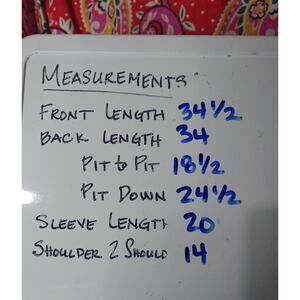 MEASUREMENTS
FRONT LENGTH 34 1/2
BACK LENGTH 34
PIT to PIT 18 1/2
PIT DOWN 24 1/2
SLEEVE LENGTH 20
SHOULDER 2 SHOULD 14